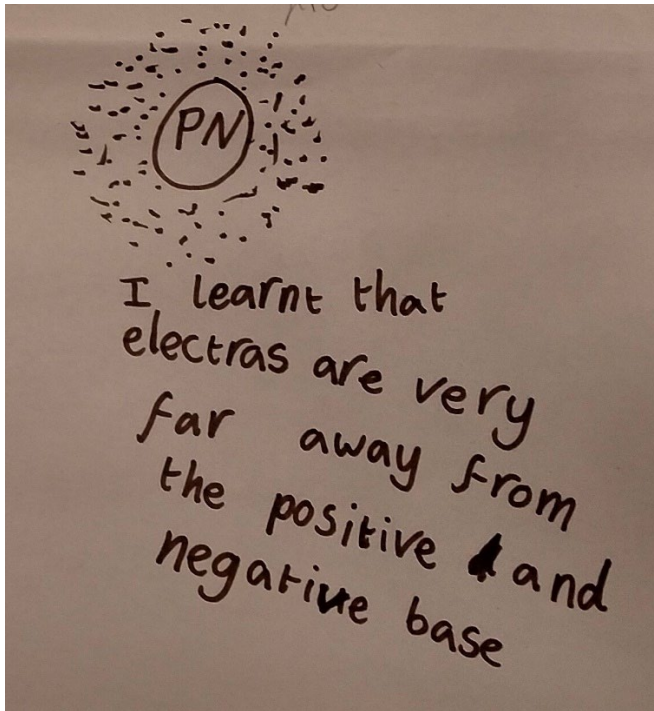 PN
I learnt that
electras are very
far away from
the positive and
negative base